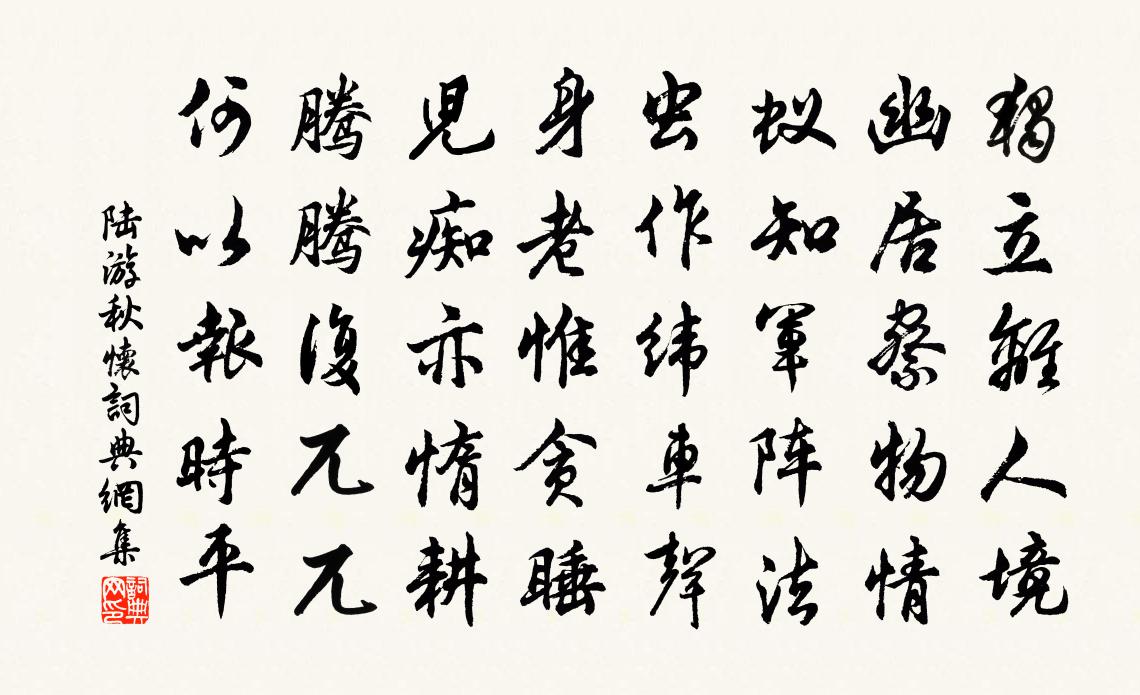 獨立離人境
幽居察物情
蚁知軍阵法
虫作纬車聲
身老惟贪睡
児痴亦惰耕
騰騰復兀兀
何以報時平
陆游秋懷詞典網集
詞典网印